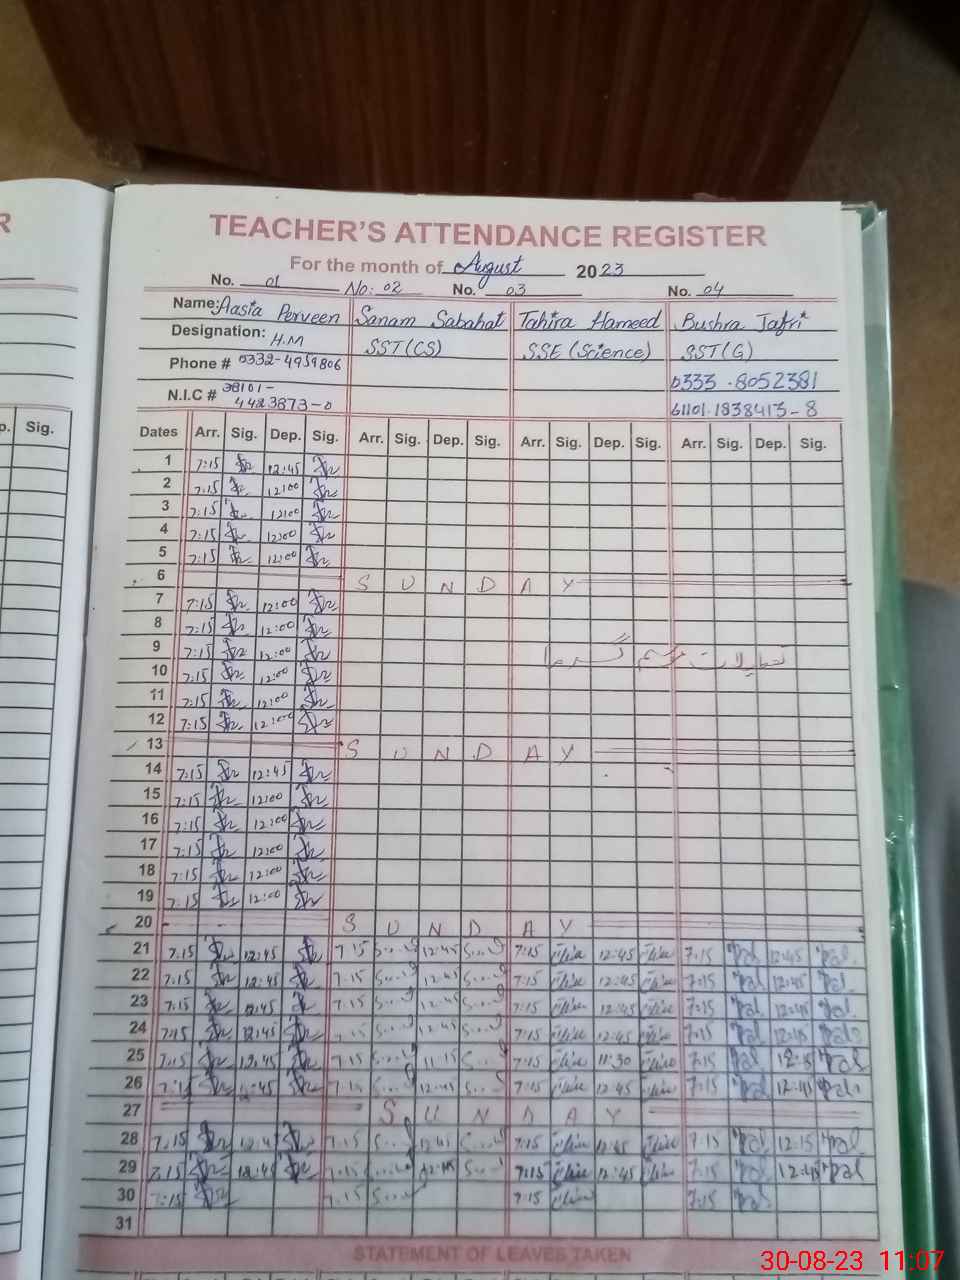 R
TEACHER'S ATTENDANCE REGISTER
For the month of August 2023
No. 01 No: 02 No. 03 No. 04
Name: Aasia Perveen Sanam Sabahat Tahira Hameed Bushra Jafri
Designation: H.M SST(CS) SSE (Science) SST(G)
Phone # 0332-4959806 0333-8052381
N.I.C # 38101-4423873-0 61101-1838413-8
p. Sig.
Dates Arr. Sig. Dep. Sig. Arr. Sig. Dep. Sig. Arr. Sig. Dep. Sig. Arr. Sig. Dep. Sig.
1 7:15 12:45
2 7:15 12:00
3 7:15 12:00
4 7:15 12:00
5 7:15 12:00
6 SUNDAY
7 7:15 12:00
8 7:15 12:00
9 7:15 12:00 تعطیلات موسم گرما
10 7:15 12:00
11 7:15 12:00
12 7:15 12:00
13 SUNDAY
14 7:15 12:45
15 7:15 12:00
16 7:15 12:00
17 7:15 12:00
18 7:15 12:00
19 7:15 12:00
20 SUNDAY
21 7:15 12:45 7:15 12:45 7:15 12:45 7:15 12:45
22 7:15 12:45 7:15 12:45 7:15 12:45 7:15 12:45
23 7:15 12:45 7:15 12:45 7:15 12:45 7:15 12:45
24 7:15 12:45 12:45 7:15 12:45 7:15 12:45
25 7:15 12:45 7:15 11:15 7:15 11:30 7:15
26 7:15 12:45 7:15 12:45 7:15 12:45 7:15 12:45
27 SUNDAY
28 7:15 12:45 7:15 12:45 7:15 12:45 7:15 12:15
29 7:15 12:45 7:15 12:45 7:15 12:45 7:15 12:45
30 7:15 7:15 7:15 7:15
31
STATEMENT OF LEAVES TAKEN
30-08-23 11:07